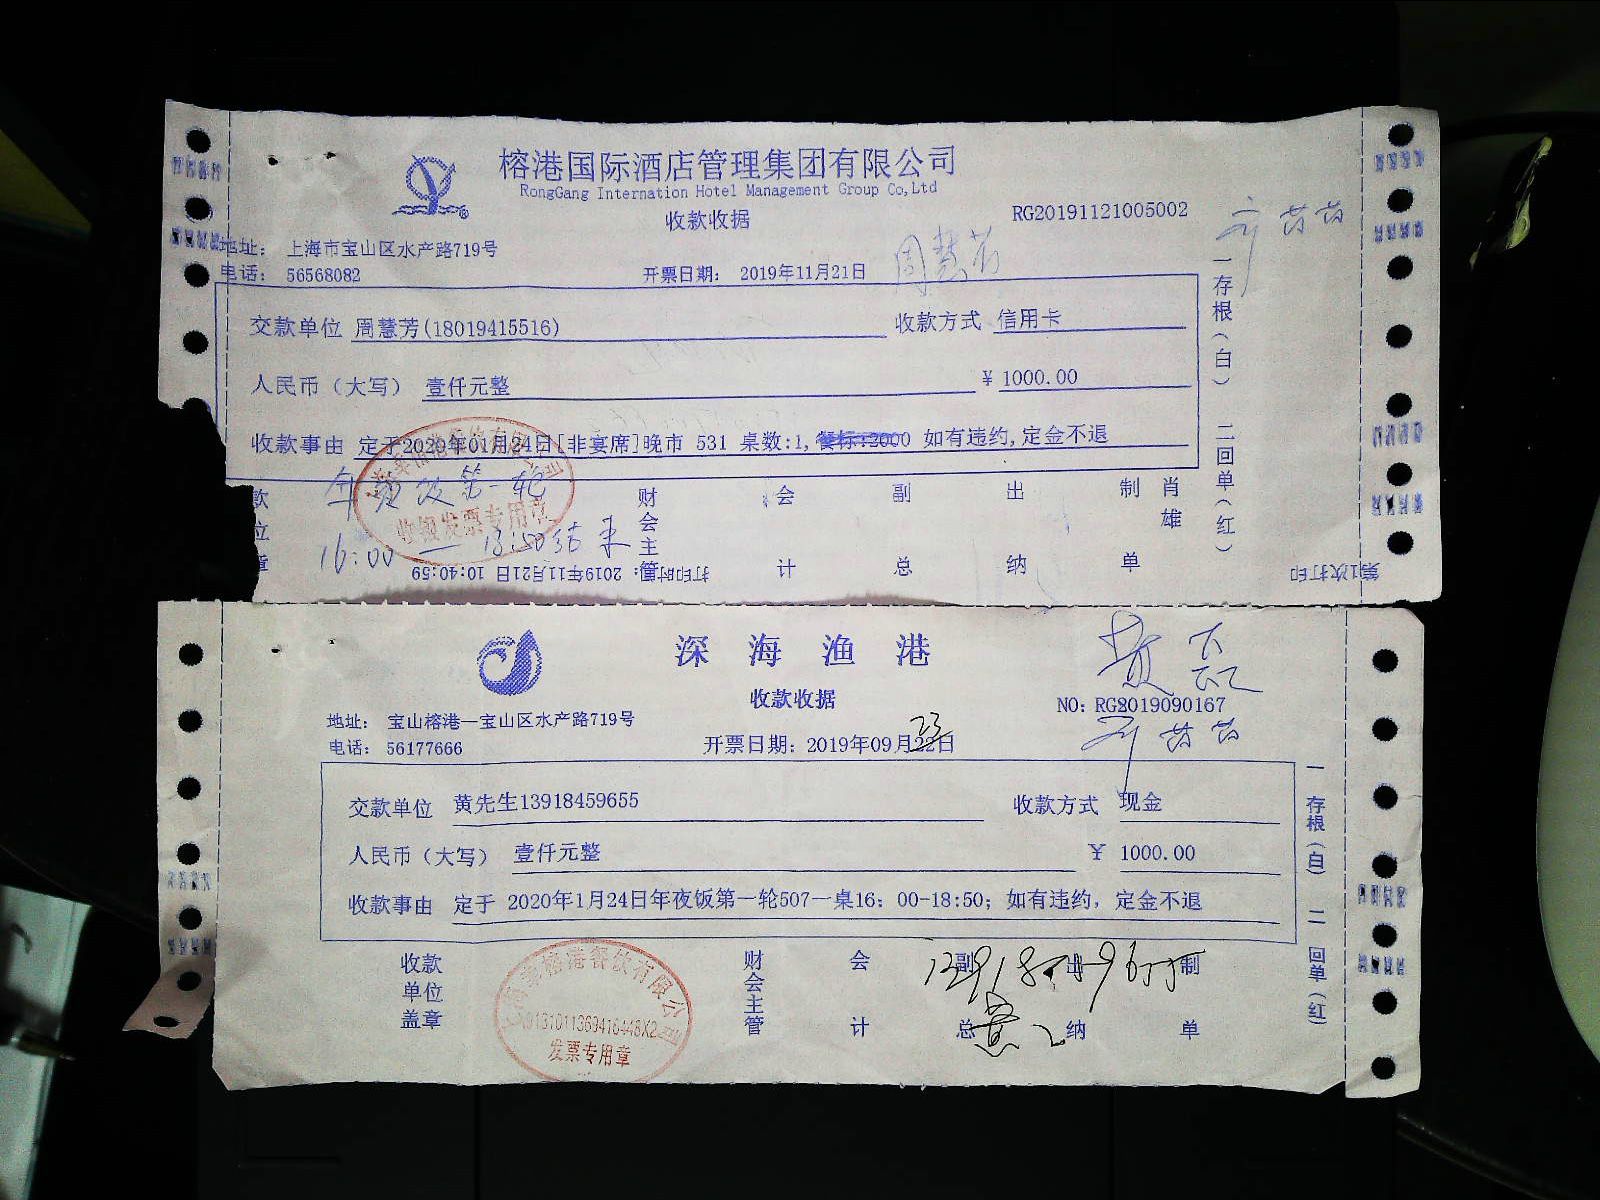 榕港国际酒店管理集团有限公司
RongGang International Hotel Management Group Co,Ltd
收款收据
RG20191121005002
地址： 上海市宝山区水产路719号
电话： 56568082
开票日期： 2019年11月21日
周慧芳
交款单位 周慧芳(18019415516) 收款方式 信用卡
人民币（大写） 壹仟元整 ￥ 1000.00
收款事由 定于2020年01月24日[非宴席]晚市 531 桌数:1,餐标:2000 如有违约,定金不退
第一轮
16:00 — 18:50结束
款位章 财会主管 会计 副总 出纳 制单 肖雄
打印时间: 2019年11月21日 10:40:59
第1次打印
一存根（白） 二回单（红）
收银发票专用章
深海渔港
收款收据
NO: RG2019090167
地址： 宝山榕港—宝山区水产路719号
电话： 56177666
开票日期: 2019年09月22日
23
交款单位 黄先生13918459655 收款方式 现金
人民币（大写） 壹仟元整 ￥ 1000.00
收款事由 定于 2020年1月24日年夜饭第一轮507一桌16：00-18:50；如有违约，定金不退
收款单位盖章 财会主管 会计 副总 出纳 制单
一存根（白） 二回单（红）
发票专用章